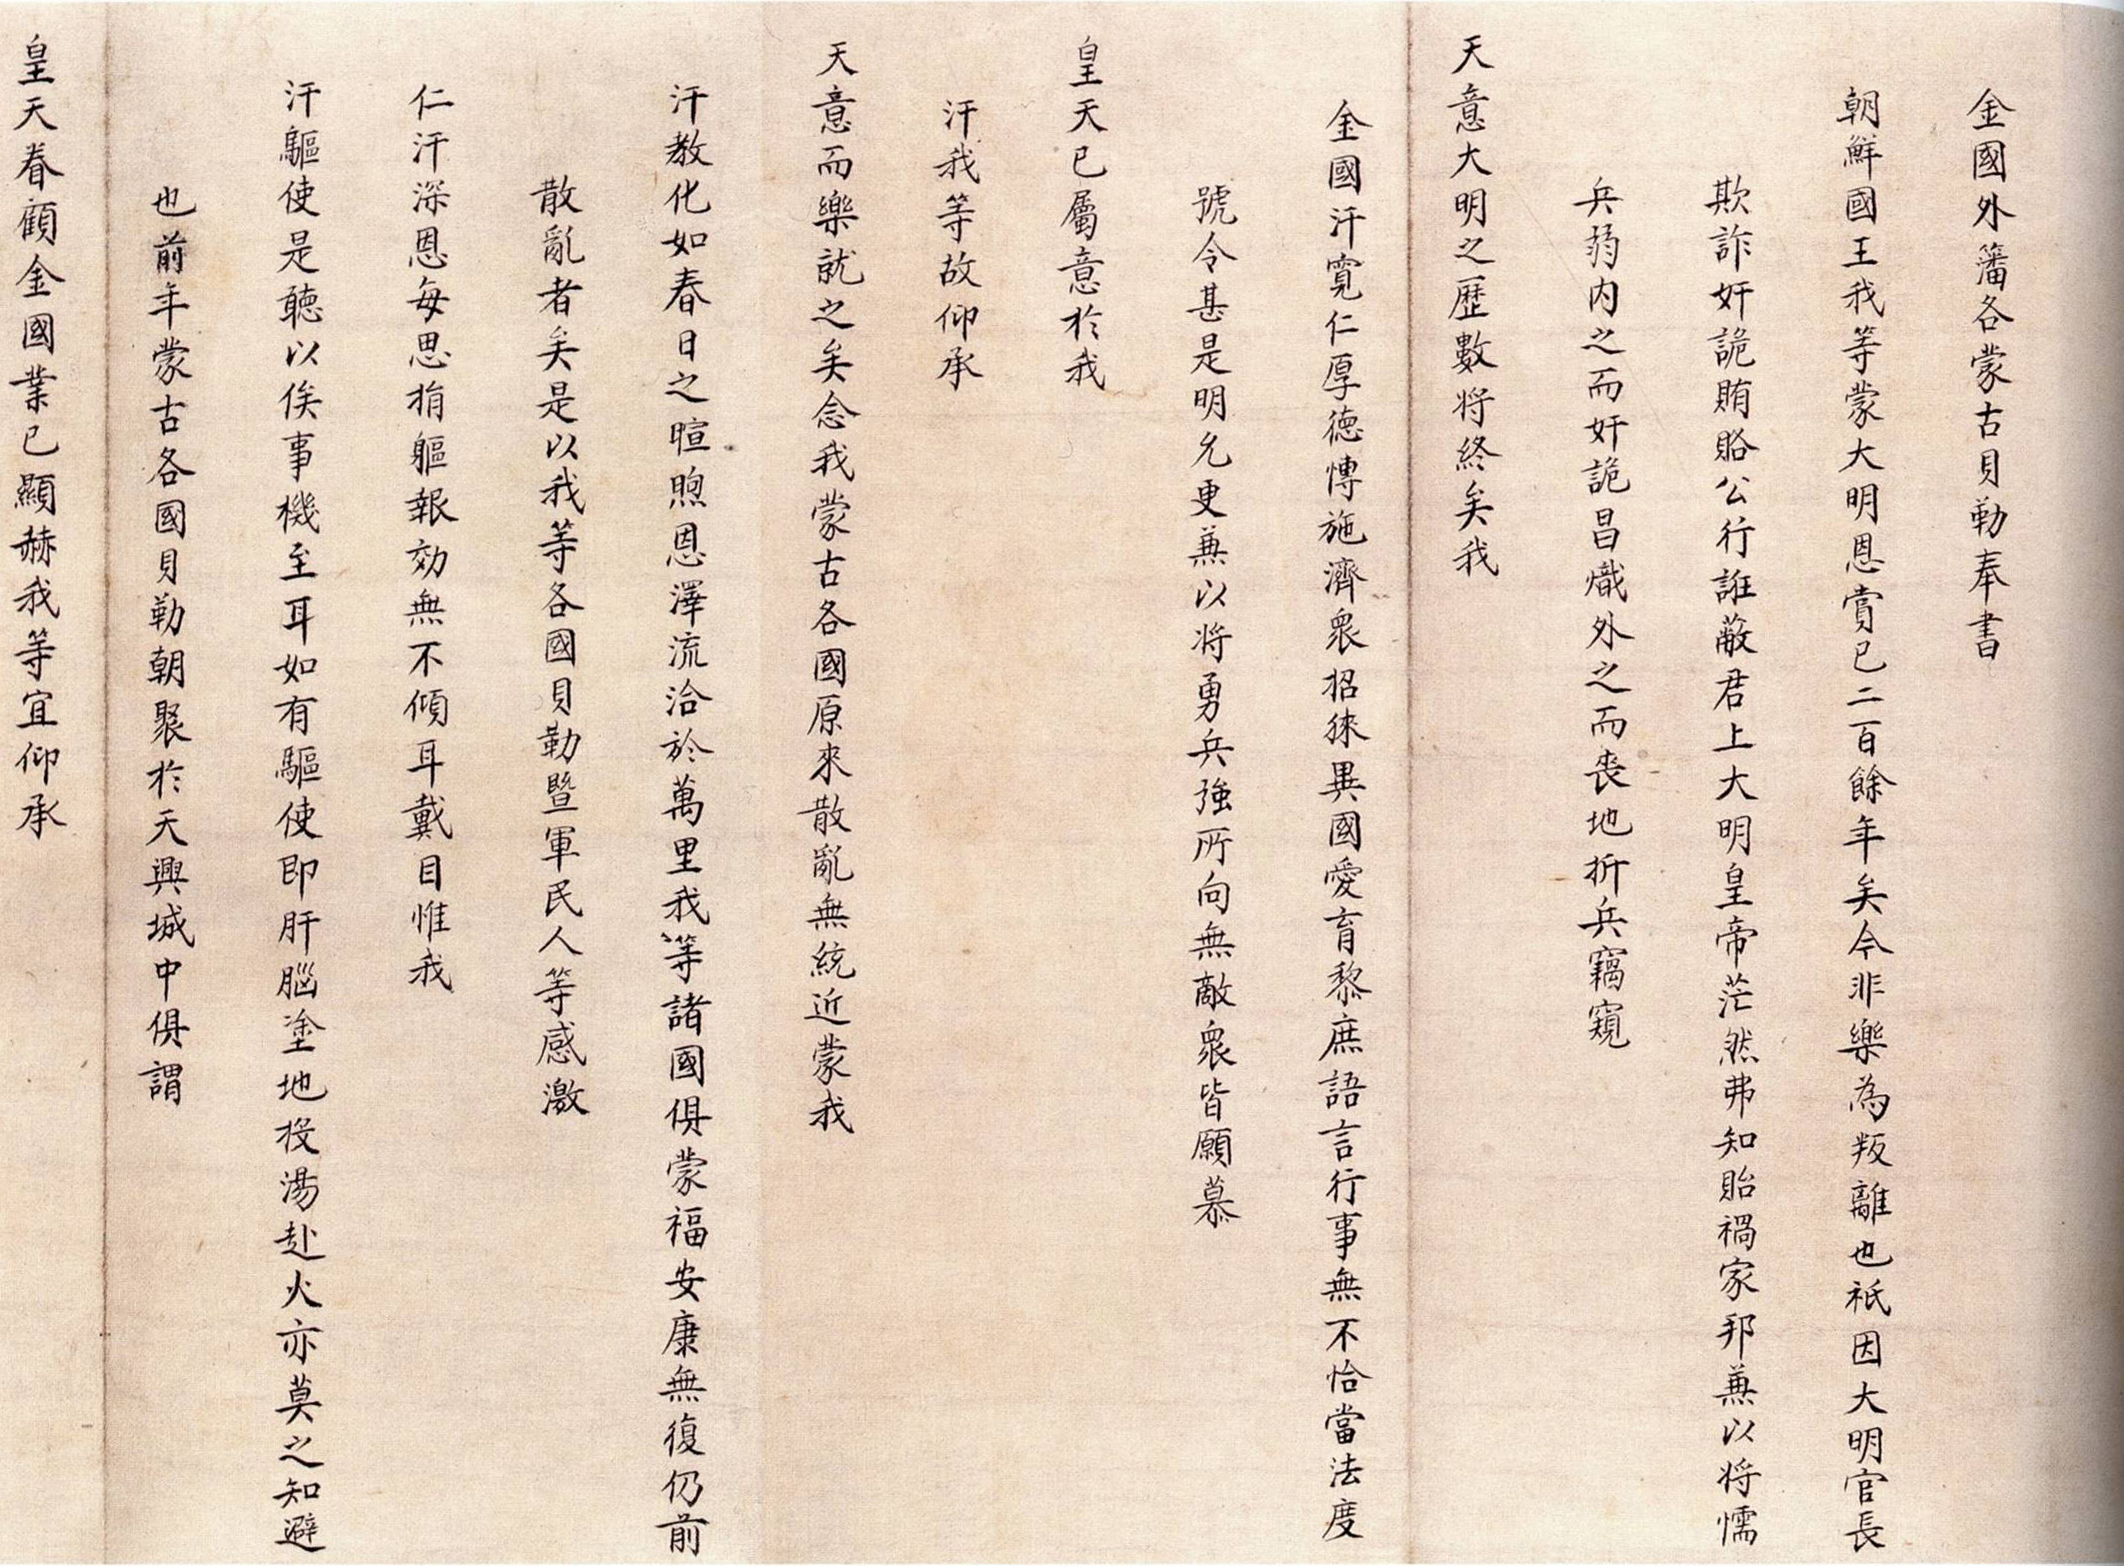 金國外藩各蒙古貝勒奉書
朝鮮國王我等蒙大明恩賞已二百餘年矣今非樂為叛離也祇因大明官長
欺詐奸詭賄賂公行誑蔽君上大明皇帝茫然弗知貽禍家邦兼以将懦
兵弱内之而奸詭昌熾外之而喪地折兵竊窺
天意大明之歷數将終矣我
金國汗寬仁厚德愽施濟衆招徠異國愛育黎庶語言行事無不恰當法度
號令甚是明允更兼以将勇兵強所向無敵衆皆願慕
皇天已屬意於我
汗我等故仰承
天意而樂就之矣念我蒙古各國原來散亂無統近蒙我
汗教化如春日之暄煦恩澤流洽於萬里我等諸國俱蒙福安康無復仍前
散亂者矣是以我等各國貝勒暨軍民人等感激
仁汗深恩每思捐軀報効無不傾耳戴目惟我
汗驅使是聽以俟事機至耳如有驅使即肝腦塗地投湯赴火亦莫之知避
也前年蒙古各國貝勒朝聚於天興城中俱謂
皇天眷顧金國業已顯赫我等宜仰承